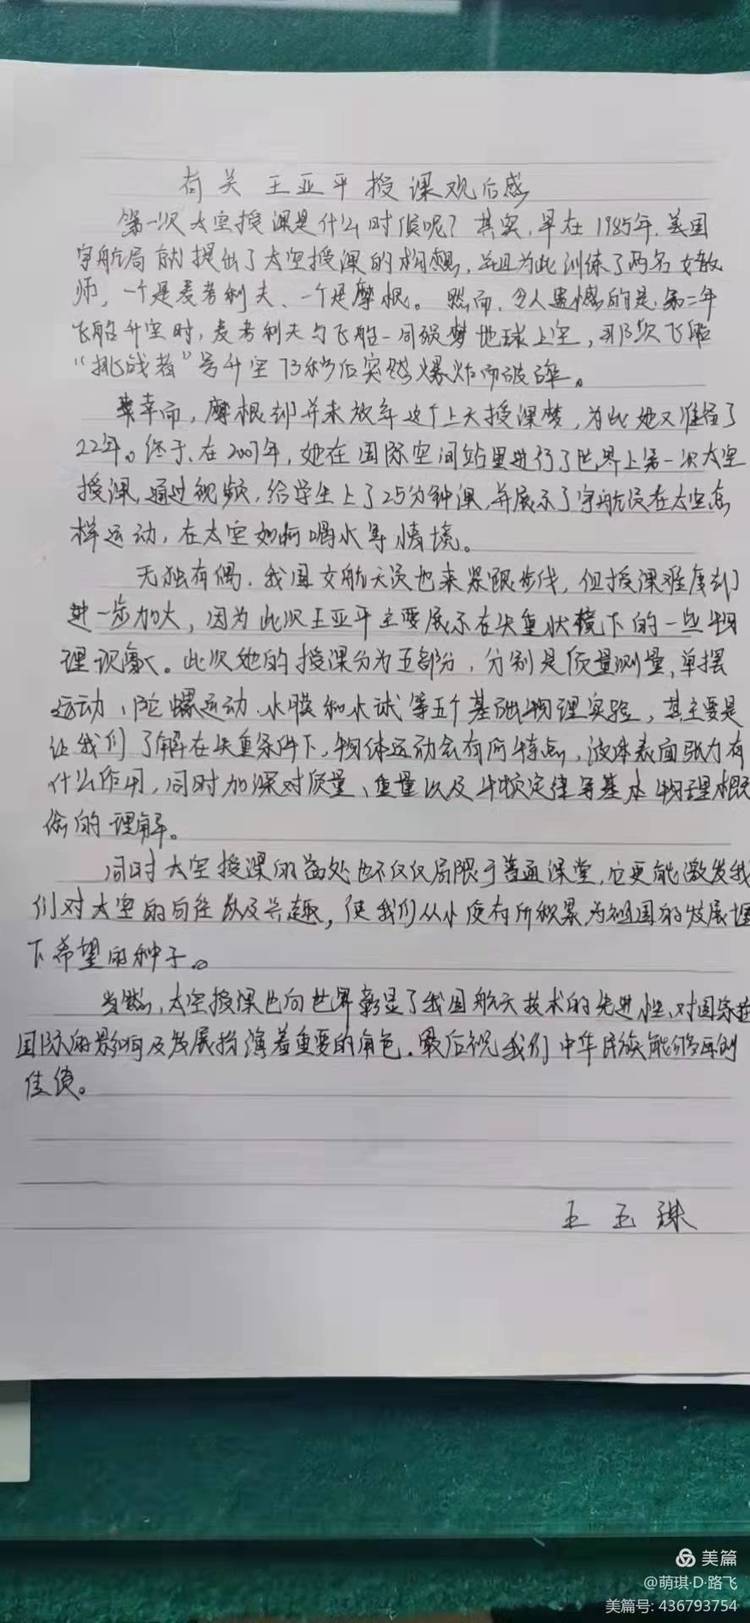 有关王亚平授课观后感
第一次太空授课是什么时候呢？其实，早在1985年，美国
宇航局就提出了太空授课的构想，并且为此训练了两名女教
师，一个是麦考利夫、一个是摩根。然而，令人遗憾的是，第二年
飞船升空时，麦考利夫与飞船一同殒梦地球上空，那次飞船
“挑战者”号升空73秒后突然爆炸而破碎。
幸而，摩根却并未放弃这个上天授课梦，为此她又准备了
22年。终于，在2007年，她在国际空间站里进行了世界上第一次太空
授课，通过视频，给学生上了25分钟课，并展示了宇航员在太空怎
样运动，在太空如何喝水等情境。
无独有偶，我国女航天员也来紧跟步伐，但授课难度却
进一步加大，因为此次王亚平主要展示在失重状态下的一些物
理现象。此次她的授课分为五部分，分别是质量测量，单摆
运动、陀螺运动、水膜和水试等五个基础物理实验，其主要是
让我们了解在失重条件下，物体运动会有何特点，液体表面张力有
什么作用，同时加深对质量、重量以及牛顿定律等基本物理概
念的理解。
同时太空授课的益处也不仅仅局限于普通课堂，它更能激发我
们对太空的向往以及兴趣，使我们从小便有所积累为祖国的发展埋
下希望的种子。
当然，太空授课也向世界彰显了我国航天技术的先进性，对国家在
国际的影响及发展扮演着重要的角色。最后祝我们中华民族能够再创
佳绩。
王玉珠
美篇
@萌琪·D·路飞
美篇号: 436793754